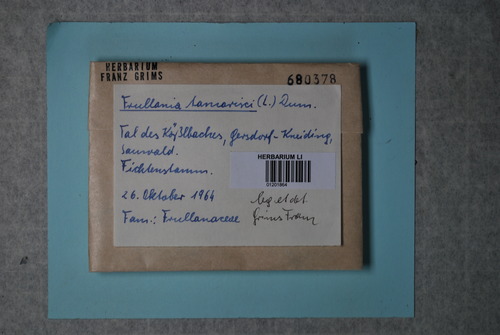 HERBARIUM
FRANZ GRIMS
680378
Frullania tamarisci (L.) Dum.
Tal des Kößlbaches, Gersdorf-Kneiding,
Sauwald.
Fichtenstamm.
HERBARIUM LI
01201864
26. Oktober 1964
leg. et det.
Fam.: Frullanaceae
Grims Franz